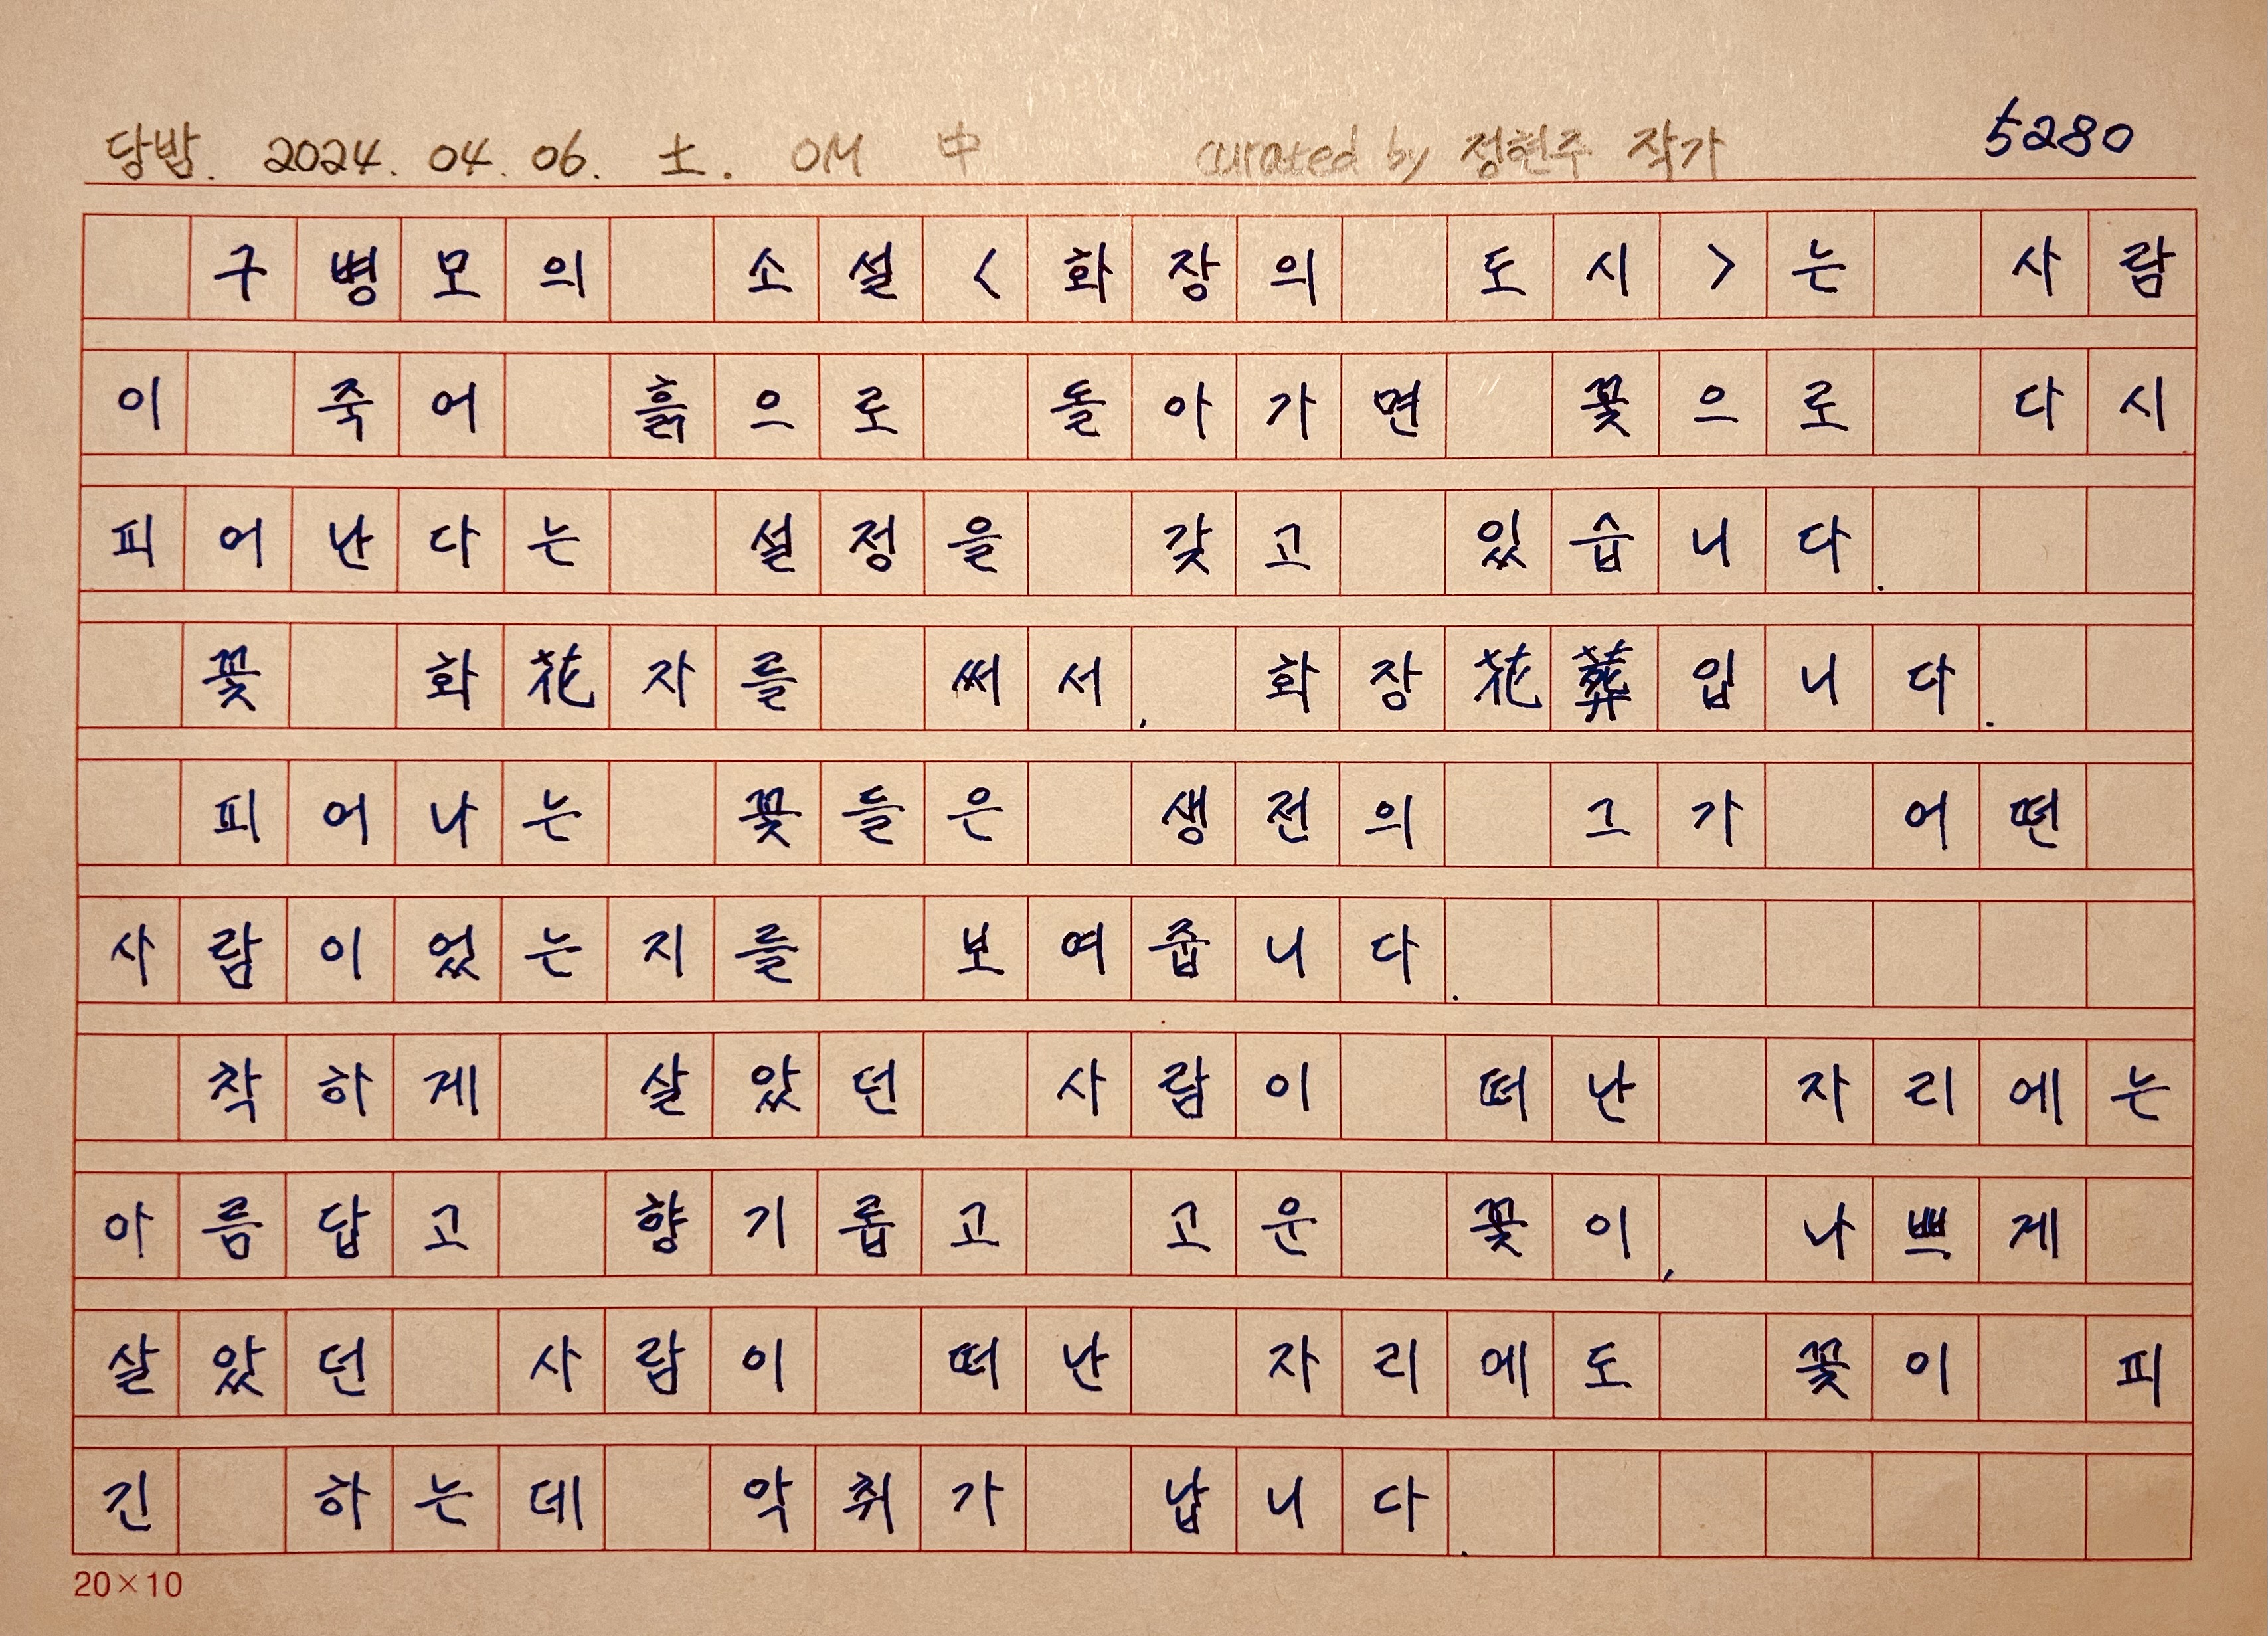 당밤. 2024. 04. 06. 土. OM 中 curated by 정현주 작가 5280
구병모의 소설<화장의 도시>는 사람
이 죽어 흙으로 돌아가면 꽃으로 다시
피어난다는 설정을 갖고 있습니다.
꽃 화花자를 써서, 화장花葬입니다.
피어나는 꽃들은 생전의 그가 어떤
사람이었는지를 보여줍니다.
착하게 살았던 사람이 떠난 자리에는
아름답고 향기롭고 고운 꽃이, 나쁘게
살았던 사람이 떠난 자리에도 꽃이 피
긴 하는데 악취가 납니다.
20×10